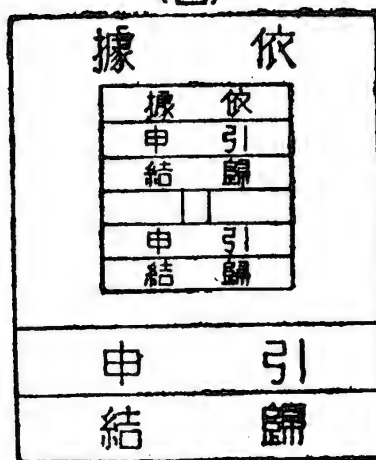 依據
依據
引申
歸結
引申
歸結
引申
歸結